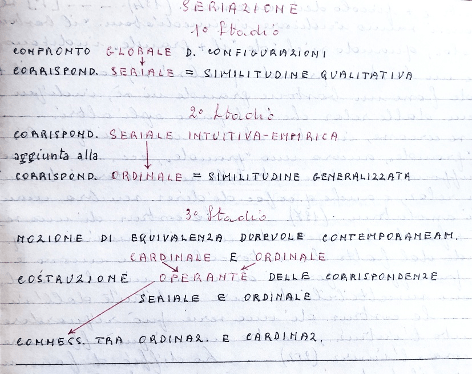 SERIAZIONE
1° Stadio
CONFRONTO GLOBALE D. CONFIGURAZIONI
CORRISPOND. SERIALE = SIMILITUDINE QUALITATIVA
2° Stadio
CORRISPOND. SERIALE INTUITIVA-EMPIRICA
aggiunta alla
CORRISPOND. ORDINALE = SIMILITUDINE GENERALIZZATA
3° Stadio
NOZIONE DI EQUIVALENZA DUREVOLE CONTEMPORANEAM.
CARDINALE E ORDINALE
COSTRUZIONE OPERANTE DELLE CORRISPONDENZE
SERIALE E ORDINALE
CONNESS. TRA ORDINAZ. E CARDINAZ.